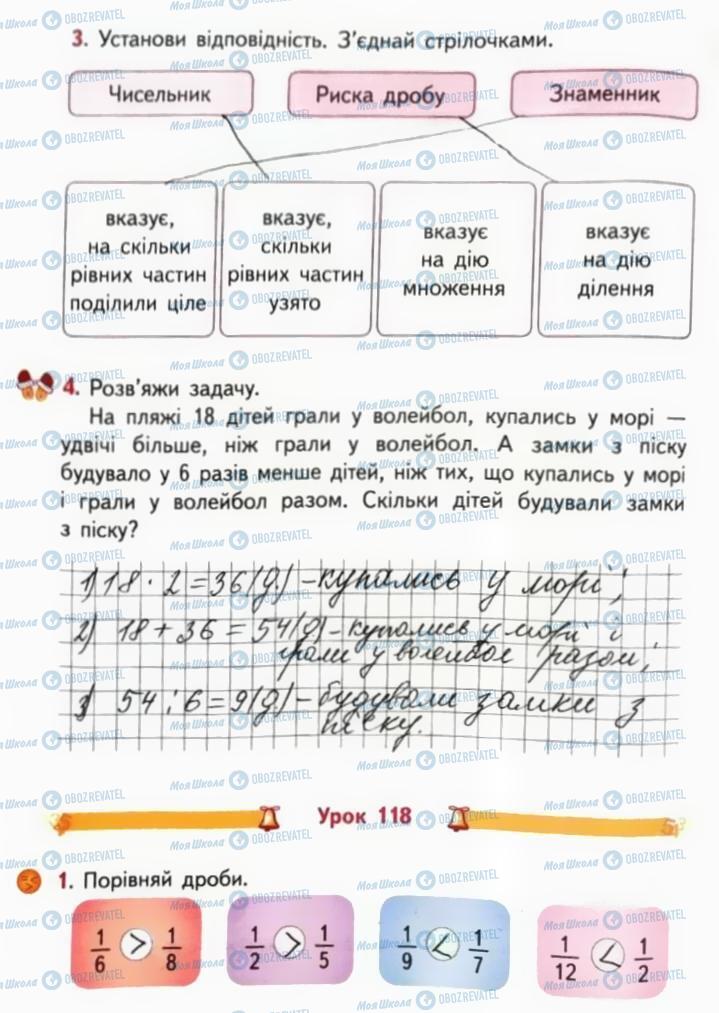 3. Установи відповідність. З'єднай стрілочками.
Чисельник
Риска дробу
Знаменник
вказує,
на скільки
рівних частин
поділили ціле
вказує,
скільки
рівних частин
узято
вказує
на дію
множення
вказує
на дію
ділення
4. Розв'яжи задачу.
На пляжі 18 дітей грали у волейбол, купались у морі —
удвічі більше, ніж грали у волейбол. А замки з піску
будувало у 6 разів менше дітей, ніж тих, що купались у морі
і грали у волейбол разом. Скільки дітей будували замки
з піску?
1) 18 · 2 = 36 (д.) – купались у морі;
2) 18 + 36 = 54 (д) – купались у морі і
грали у волейбол разом;
3) 54 : 6 = 9 (д) – будували замки з
піску.
Урок 118
1. Порівняй дроби.
1/6 > 1/8
1/2 > 1/5
1/9 < 1/7
1/12 < 1/2
МояШкола OBOZREVATEL